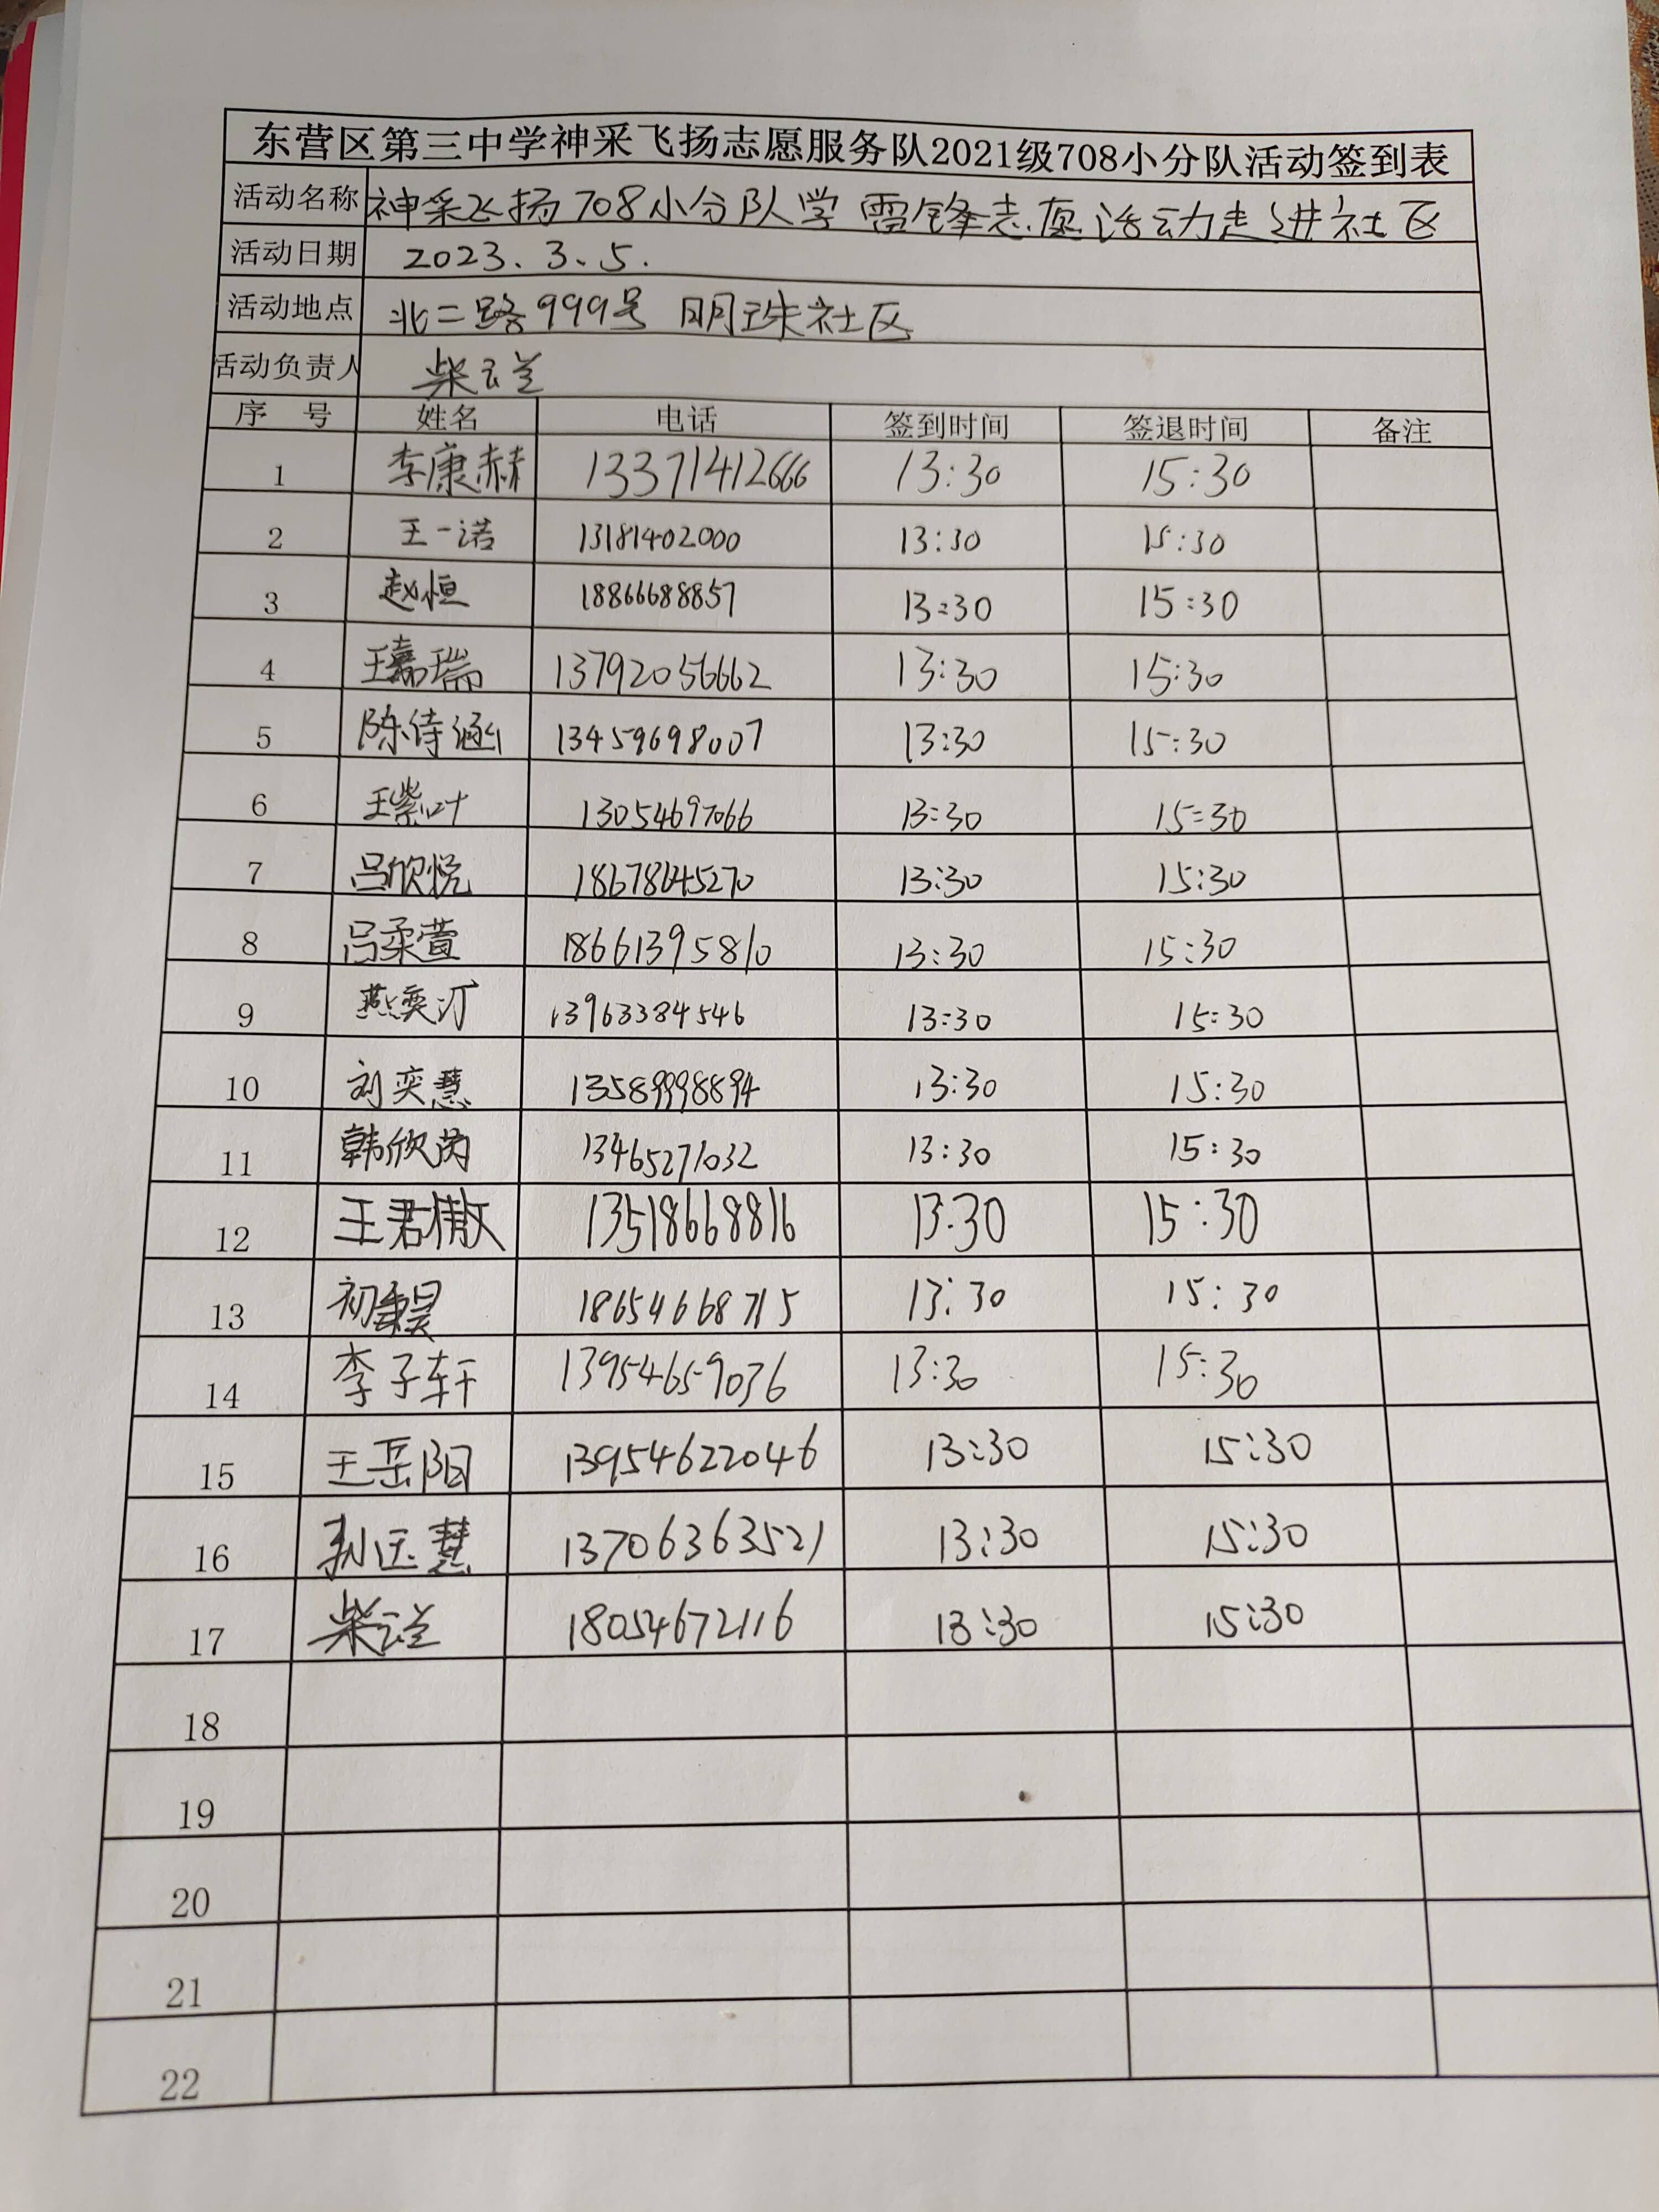 东营区第三中学神采飞扬志愿服务队2021级708小分队活动签到表
活动名称 神采飞扬708小分队学雷锋志愿活动走进社区
活动日期 2023.3.5.
活动地点 北二路999号 明珠社区
活动负责人 柴云兰
序 号 姓名 电话 签到时间 签退时间 备注
1 李康赫 13371412666 13:30 15:30
2 王一诺 13181402000 13:30 15:30
3 赵恒 18866688857 13:30 15:30
4 王嘉瑞 13792056662 13:30 15:30
5 陈诗涵 13459698007 13:30 15:30
6 王紫叶 13054697066 13:30 15:30
7 吕欣悦 18678645270 13:30 15:30
8 吕柔萱 18661395810 13:30 15:30
9 燕奕汀 13963384546 13:30 15:30
10 刘奕慧 13589998894 13:30 15:30
11 韩欣芮 13465271032 13:30 15:30
12 王君 13518668816 13:30 15:30
13 初秉昊 18654668715 13:30 15:30
14 李子轩 13954659036 13:30 15:30
15 王岳阳 13954622046 13:30 15:30
16 孙玉慧 13706363521 13:30 15:30
17 柴云兰 18054672116 13:30 15:30
18
19
20
21
22